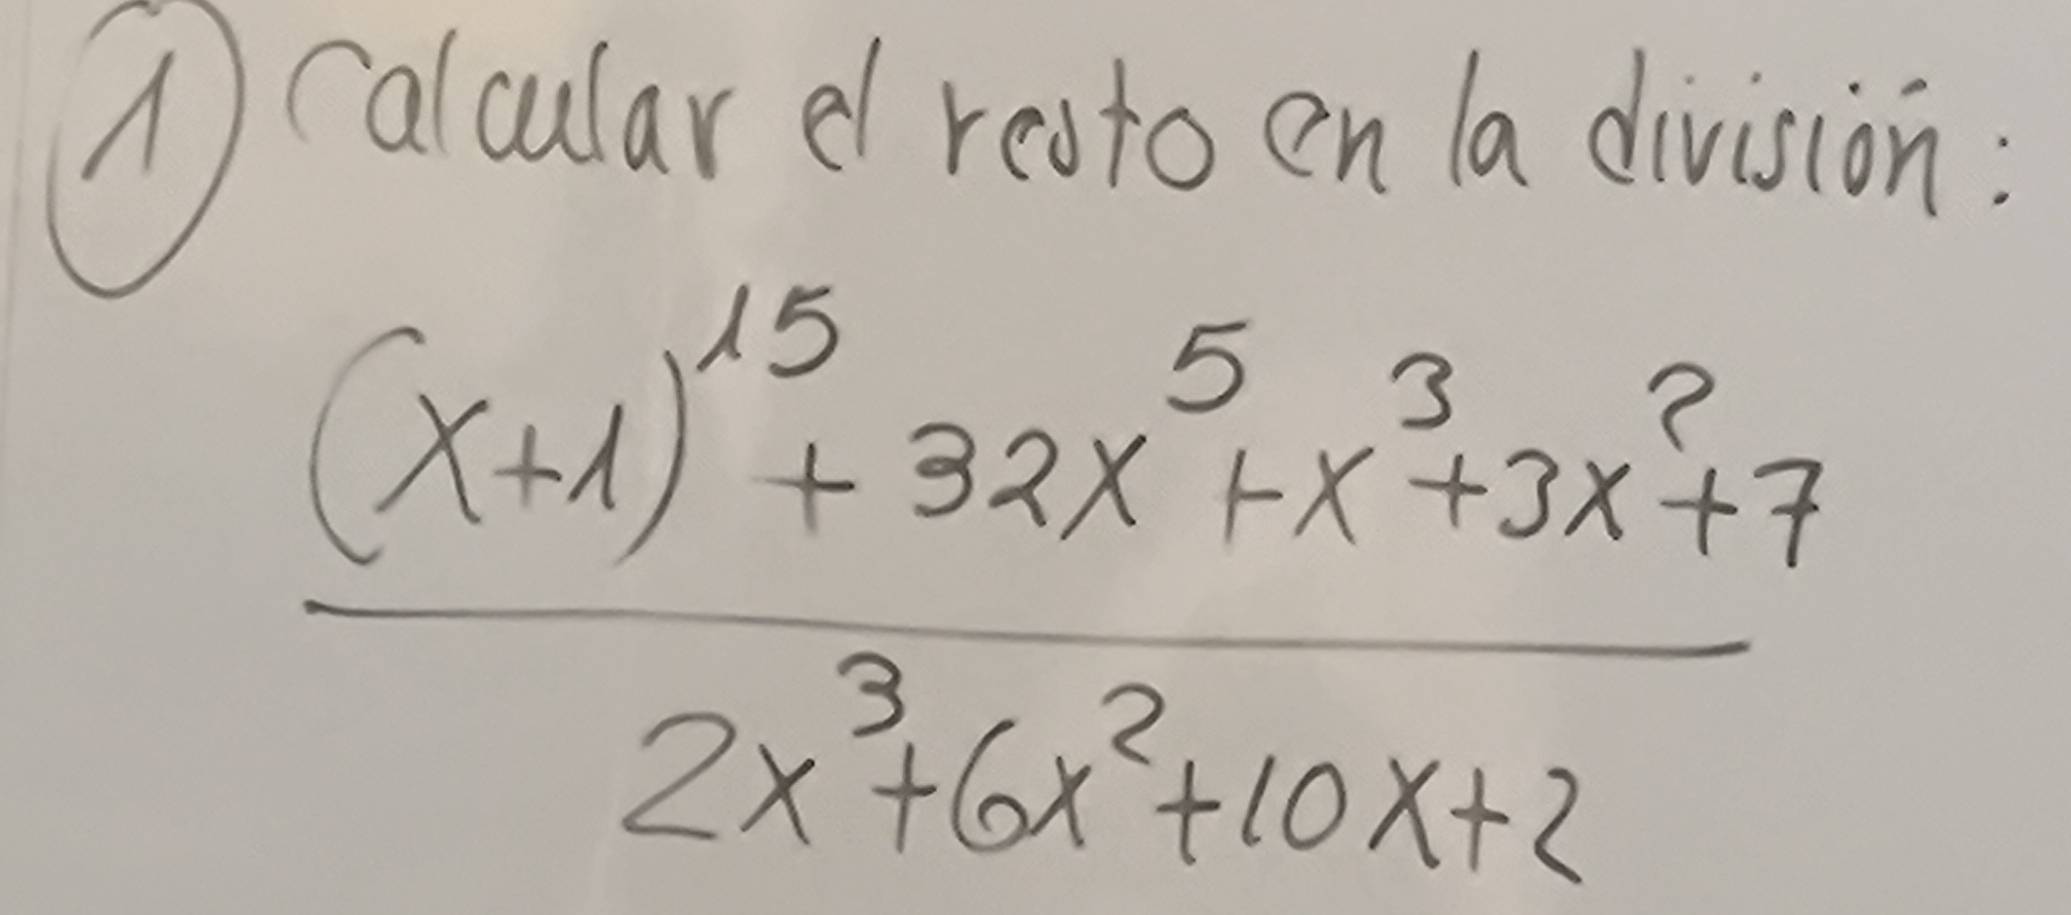 ① Calcular el resto en la división:
(x+1)¹⁵ + 32x⁵ + x³ + 3x² + 7
2x³ + 6x² + 10x + 2